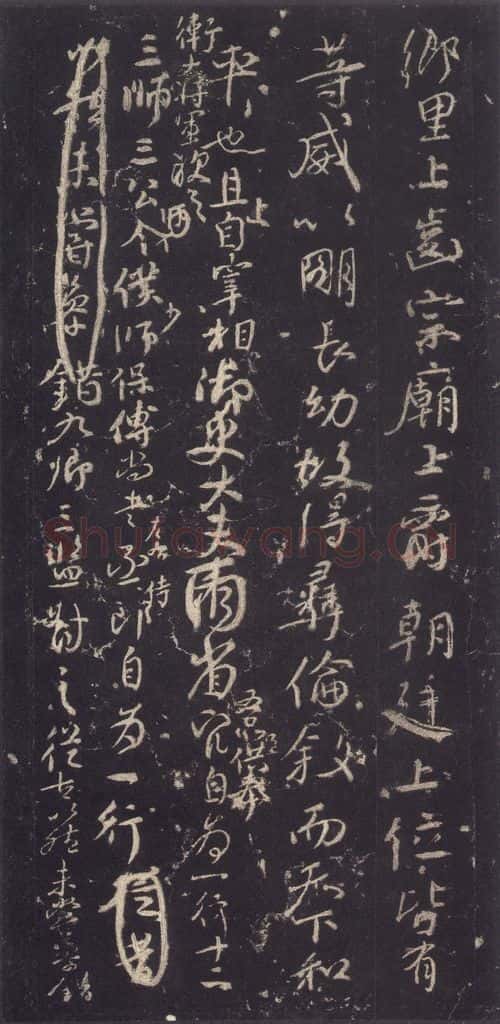 鄉里上齒宗廟上爵朝廷上位皆有
等威以明長幼故得彝倫敘而天下和
平也且上自宰相御史大夫兩省供奉官自為一行十二
衛大將軍次之
三師三公令僕少師保傅尚書左右丞侍郎自為一行
未嘗參錯九卿三監對之從古以然未嘗參錯
Shufawang.cn